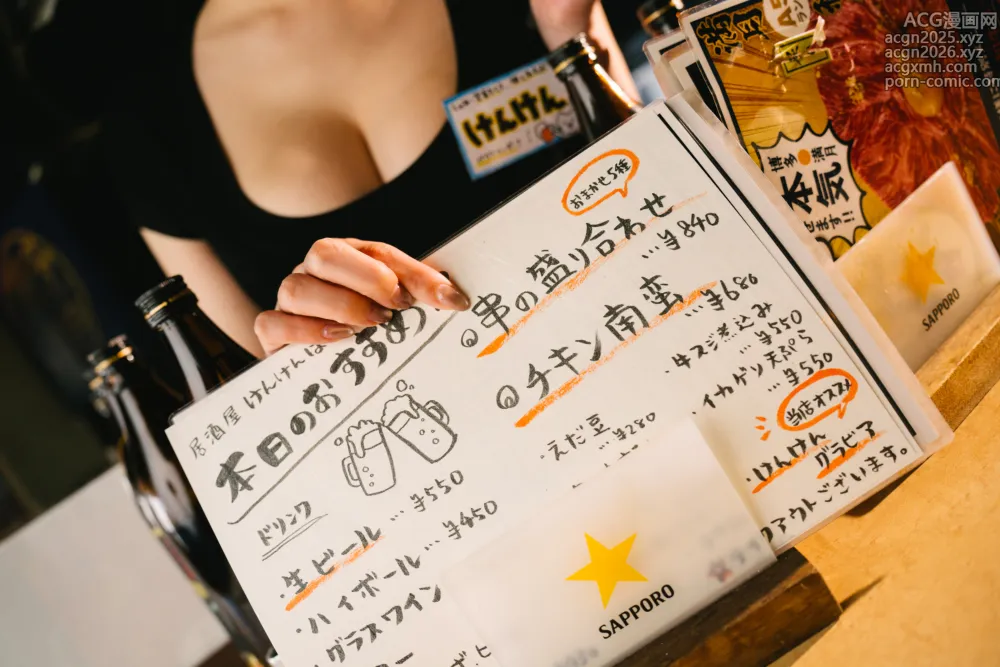 ACG漫画网
acgn2025.xyz
acgn2026.xyz
acgxmh.com
porn-comic.com
けんけん
博多満月
本気
せます!!
SAPPORO
居酒屋 けんけん
本日のおすすめ
ドリンク
・生ビール … ¥550
・ハイボール … ¥450
・グラスワイン
おまかせ5種
串の盛り合わせ
… ¥840
チキン南蛮
… ¥680
・えだ豆
… ¥280
・牛スジ煮込み
… ¥550
・イカゲソ天ぷら
… ¥550
当店オススメ
・けんけん
グラビア
アウトございます。
SAPPORO